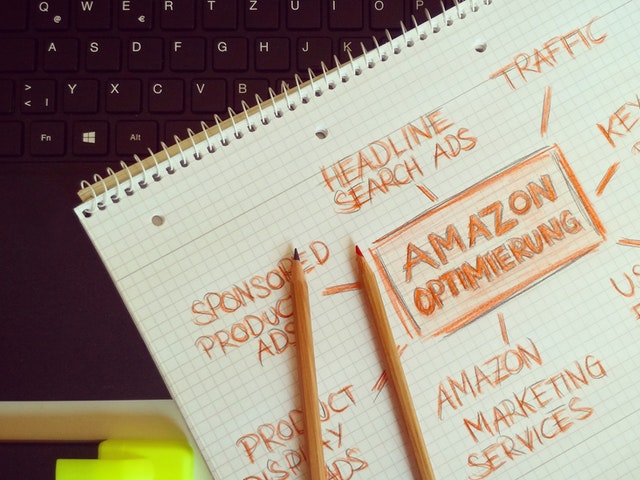 Q W E R T Z U I O P
@ €
A S D F G H J K
> < | Y X C V B
Fn Alt
TRAFFIC
HEADLINE
SEARCH ADS
KEY
AMAZON
OPTIMIERUNG
SPONSORED
PRODUCT
ADS
AMAZON
MARKETING
SERVICES
PRODUCT
DISPLAY
ADS